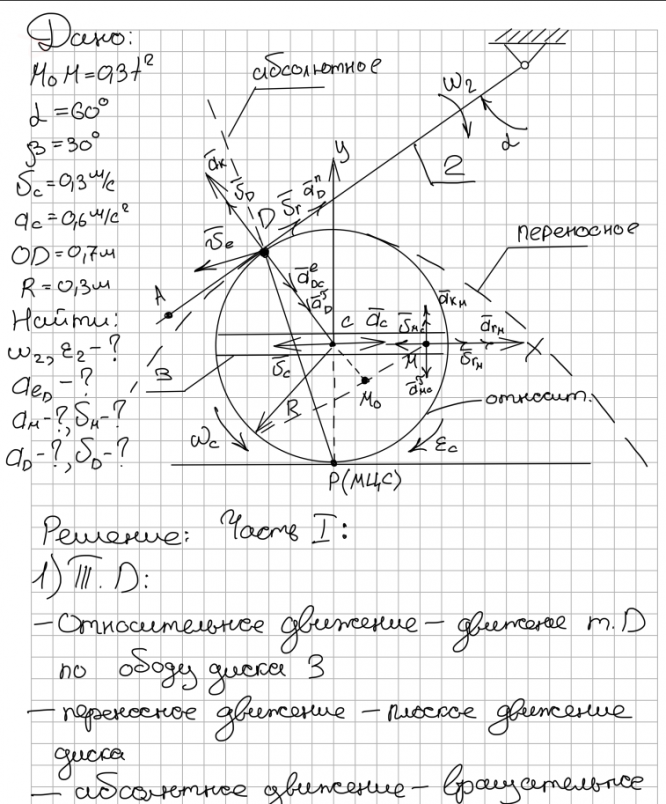 Дано:
M₀M=0,3t²
α=60°
β=30°
υc=0,3м/с
ac=0,6м/с²
OD=0,7м
R=0,3м
Найти:
ω₂, ε₂-?
aeD-?
aм-?, υм-?
aD-?, υD-?
абсолютное
ω₂
α
2
y
āк
ῡD
D
ῡr
āDⁿ
переносное
ῡe
A
āDCᵉ
C
āc
āкм
ῡмс
M
ārм
ῡrм
x
ῡc
3
M₀
R
относит.
ωc
εc
P(МЦС)
Решение: Часть I:
1) Т. D:
– Относительное движение – движение т. D
по ободу диска 3
– переносное движение – плоское движение
диска
– абсолютное движение – вращательное